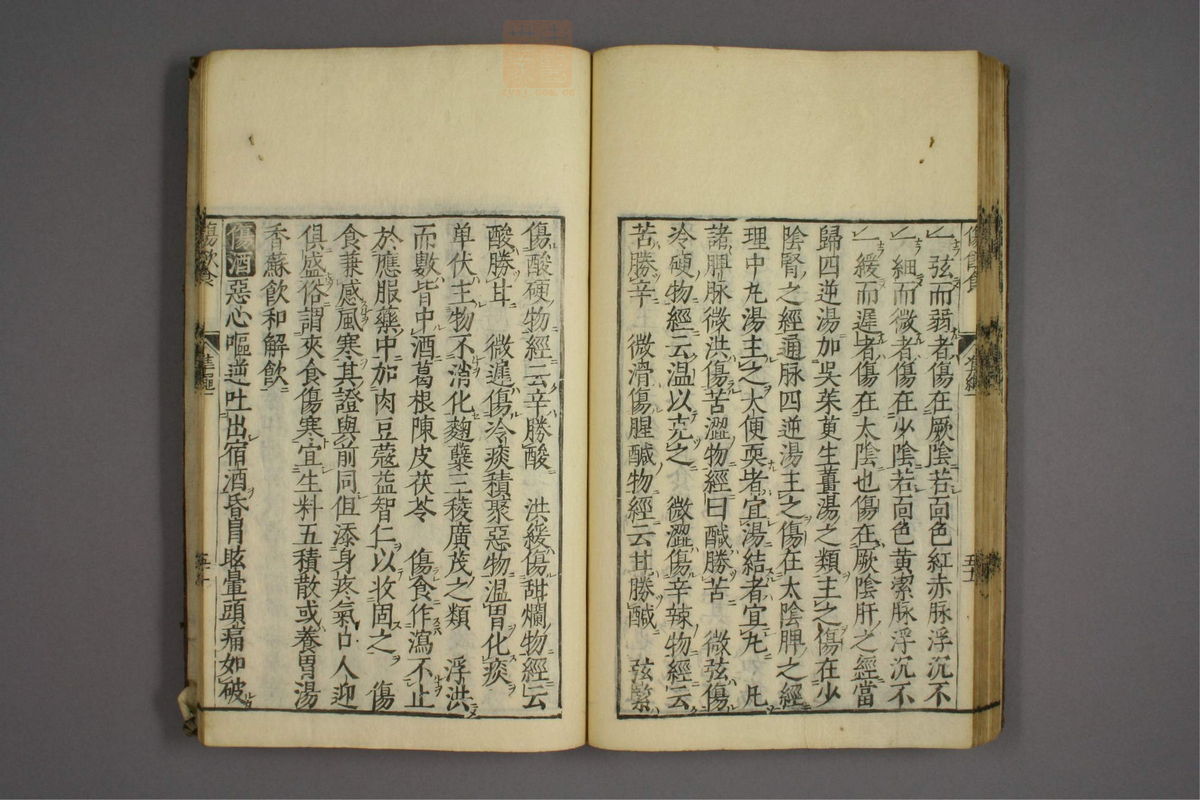 弦而弱者傷在厥陰若面色紅赤脉浮沉不
細而微者傷在少陰若面色黃潔脉浮沉不
緩而遲者傷在太陰也傷在厥陰肝之經當
歸四逆湯加吳茱萸生薑湯之類主之傷在少
陰腎之經通脉四逆湯主之傷在太陰脾之經
理中丸湯主之大便耎者宜湯結者宜丸 凡
諸脾脉微洪傷苦澀物經曰醎勝苦 微弦傷
冷硬物經云温以克之 微澀傷辛辣物經云
苦勝辛 微滑傷腥醎物經云甘勝醎 弦緊
傷酸硬物經云辛勝酸 洪緩傷甜爛物經云
酸勝甘 微遲傷冷痰積聚惡物温胃化痰
单伏主物不消化麴櫱三稜廣茂之類 浮洪
而數皆中酒葛根陳皮茯苓 傷食作瀉不止
於應服藥中加肉豆蔻益智仁以收固之 傷
食兼感風寒其證與前同但添身疼氣口人迎
俱盛俗謂夾食傷寒宜生料五積散或養胃湯
香蘇飲和解飲
傷酒惡心嘔逆吐出宿酒昏冒眩暈頭痛如破
傷飲食